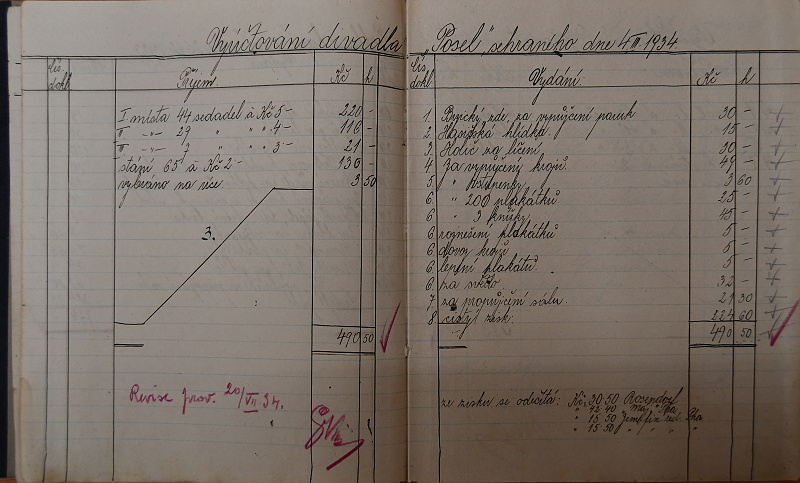 Vyúčtování divadla "Posel" sehraného dne 4/III. 1934
Čís. dokl.
Příjem
Kč h
I. místa 44 sedadel à Kč 5- 220 -
II " 29 " " " 4- 116 -
III " 7 " " " 3- 21 -
stání 65 à Kč 2- 130 -
vybráno na více 3 50
3.
490 50
Revise prov. 20/VII 34.
Čís. dokl.
Vydání.
Kč h
1. zde, za vypůjčení paruk 30 -
2. Hasičská hlídka 15 -
3. Holič za líčení 20 -
4. Za vypůjčení krojů 49 -
5. " vstupenky 3 60
6. " 200 plakátků 25 -
6 " 3 knížky 45 -
6 roznešení plakátků 5 -
6 dovoz krojů 5 -
6 lepení plakátů 5 -
6 za světlo 32 -
7 za propůjčení sálu 21 30
8. čistý zisk 224 60
490 50
ze zisku se odečítá: Kč 30 50
" 42 40
" 15 50
" 15 50 " " "